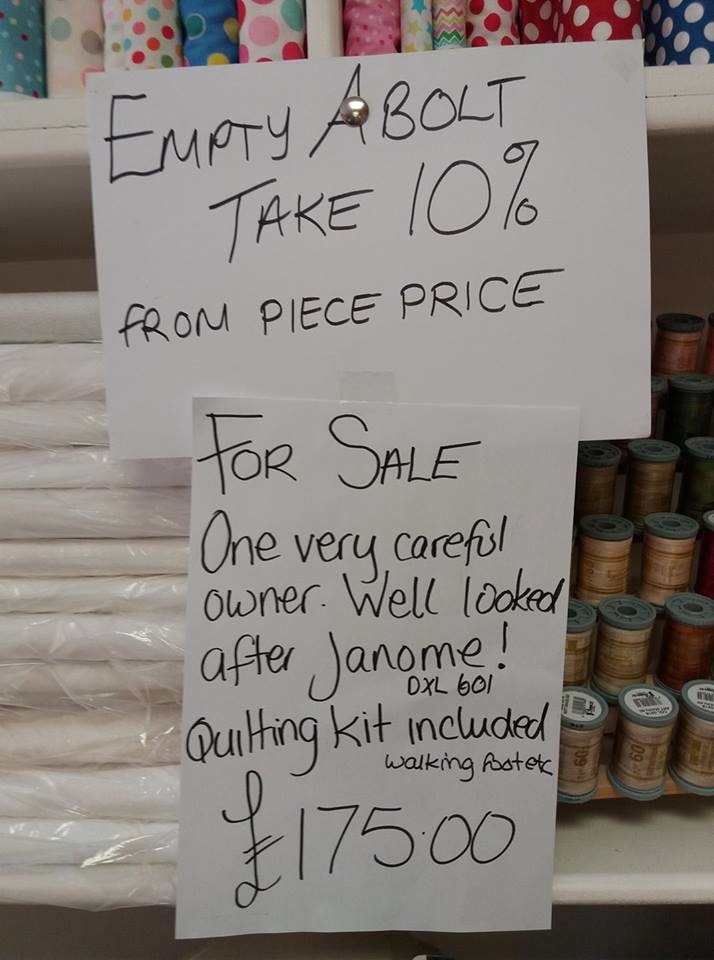 EMPTY A BOLT
TAKE 10%
FROM PIECE PRICE
FOR SALE
One very careful
owner. Well looked
after Janome!
DXL 601
Quilting kit included
walking foot etc
£175.00
60
60